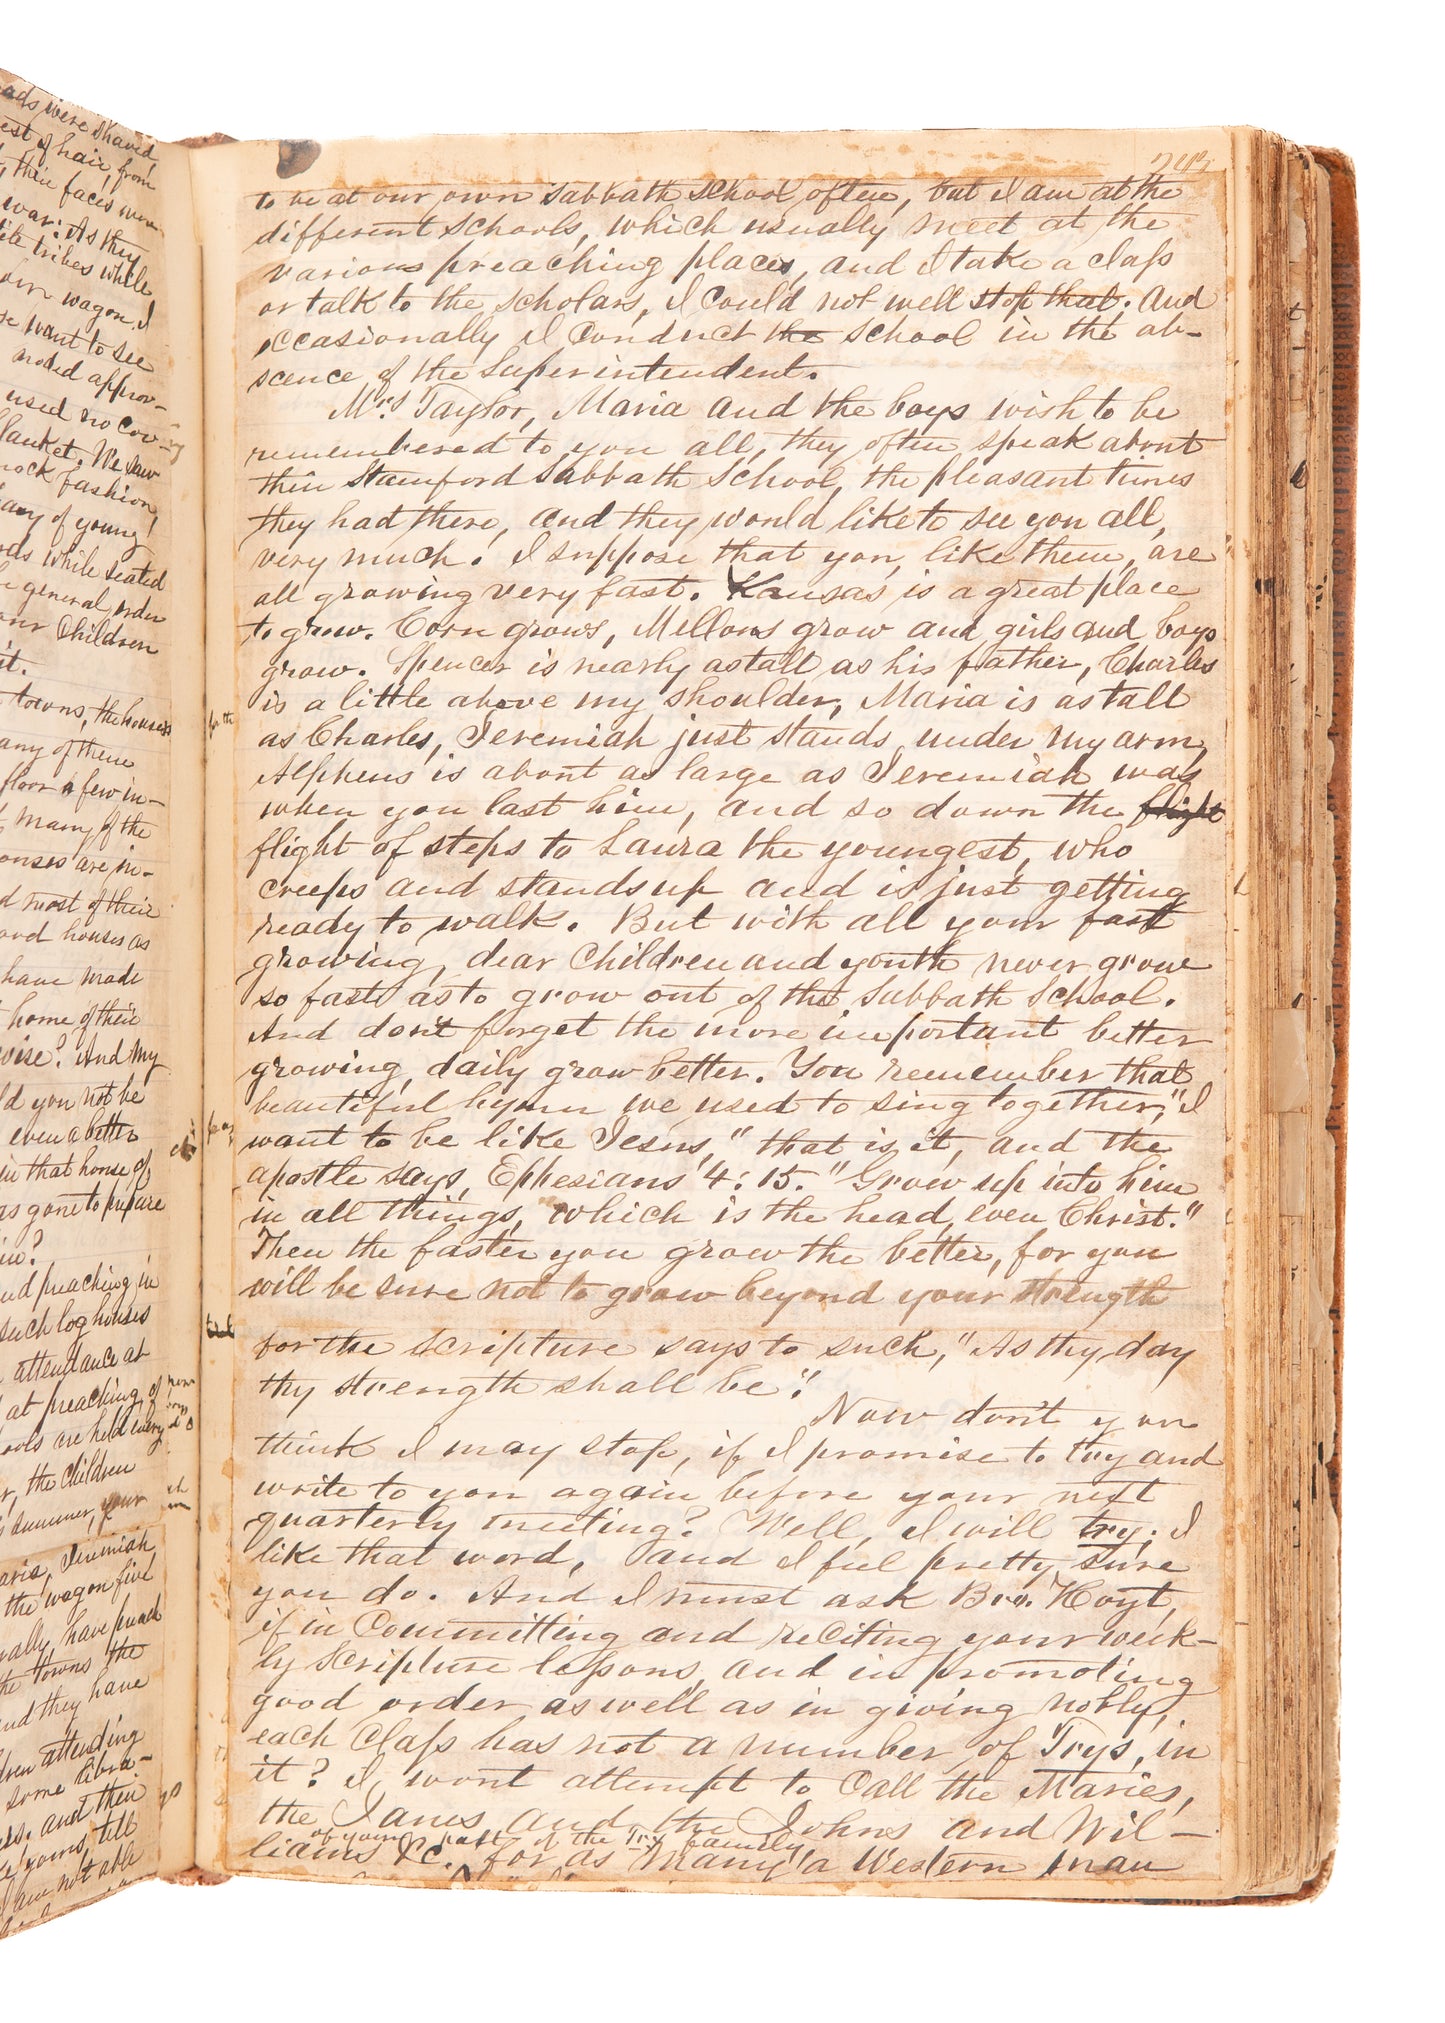 ads were shaved,
est of hair, from
their faces were
war. As they
ite tribes while
own wagon. I
se want to see
noded approv-
used no cov-
lanket. We saw
rock fashion,
any of young
rds while seated
he general order
our Children
it.
towns, the houses
any of them
floor a few in-
many of the
ouses are in-
d most of their
and houses as
have made
home of their
wise? And my
ld you not be
even a better
in that house of
as gone to prepare
in?
nd preaching in
such log houses
attendance at
at preaching, of
ools we held every
r, the children
summer, your
aria, Jeremiah
the wagon five
have preach
the towns the
and they have
dren attending
some libra-
es, and their
yours, tell
I am not able
243
to be at our own Sabbath School, often, but I am at the
different Schools, which usually meet at the
various preaching places, and I take a class
or talk to the scholars, I could not well stop that. And
occasionally I conduct the school in the ab-
scence of the Superintendent.
Mrs Taylor, Maria and the boys wish to be
remembered to you all, they often speak about
their Stamford Sabbath School, the pleasant times
they had there, and they would like to see you all,
very much. I suppose that you, like them, are
all growing very fast. Kansas is a great place
to grow. Corn grows, Mellons grow and girls and boys
grow. Spencer is nearly as tall as his father, Charles
is a little above my shoulder, Maria is as tall
as Charles, Jeremiah just stands under my arm,
Alpheus is about as large as Jeremiah was
when you last him, and so down the flight
flight of steps to Laura the youngest, who
creeps and stands up and is just getting
ready to walk. But with all your fast
growing, dear Children and youth never grow
so fast as to grow out of the Sabbath School.
And don't forget the more important better
growing, daily grow better. You remember that
beautiful hymn we used to sing together, "I
want to be like Jesus," that is it, and the
apostle says, Ephesians 4: 15. "Grow up into him
in all things, which is the head, even Christ."
Then the faster you grow the better, for you
will be sure not to grow beyond your strength
for the Scripture says to such, "As thy day
thy strength shall be".
Now don't you
think I may stop, if I promise to try and
write to you again before your next
quarterly meeting? Well, I will try; I
like that word, and I feel pretty sure
you do. And I must ask Bro. Hoyt,
if in Committing and reciting your week-
ly Scripture lessons, and in promoting
good order as well as in giving nobly,
each Class has not a number of Trys, in
it? I, wont attempt to Call the Maries,
the Janes and the Johns and Wil-
of your part of the Try family
liams &c. for as many a Western man